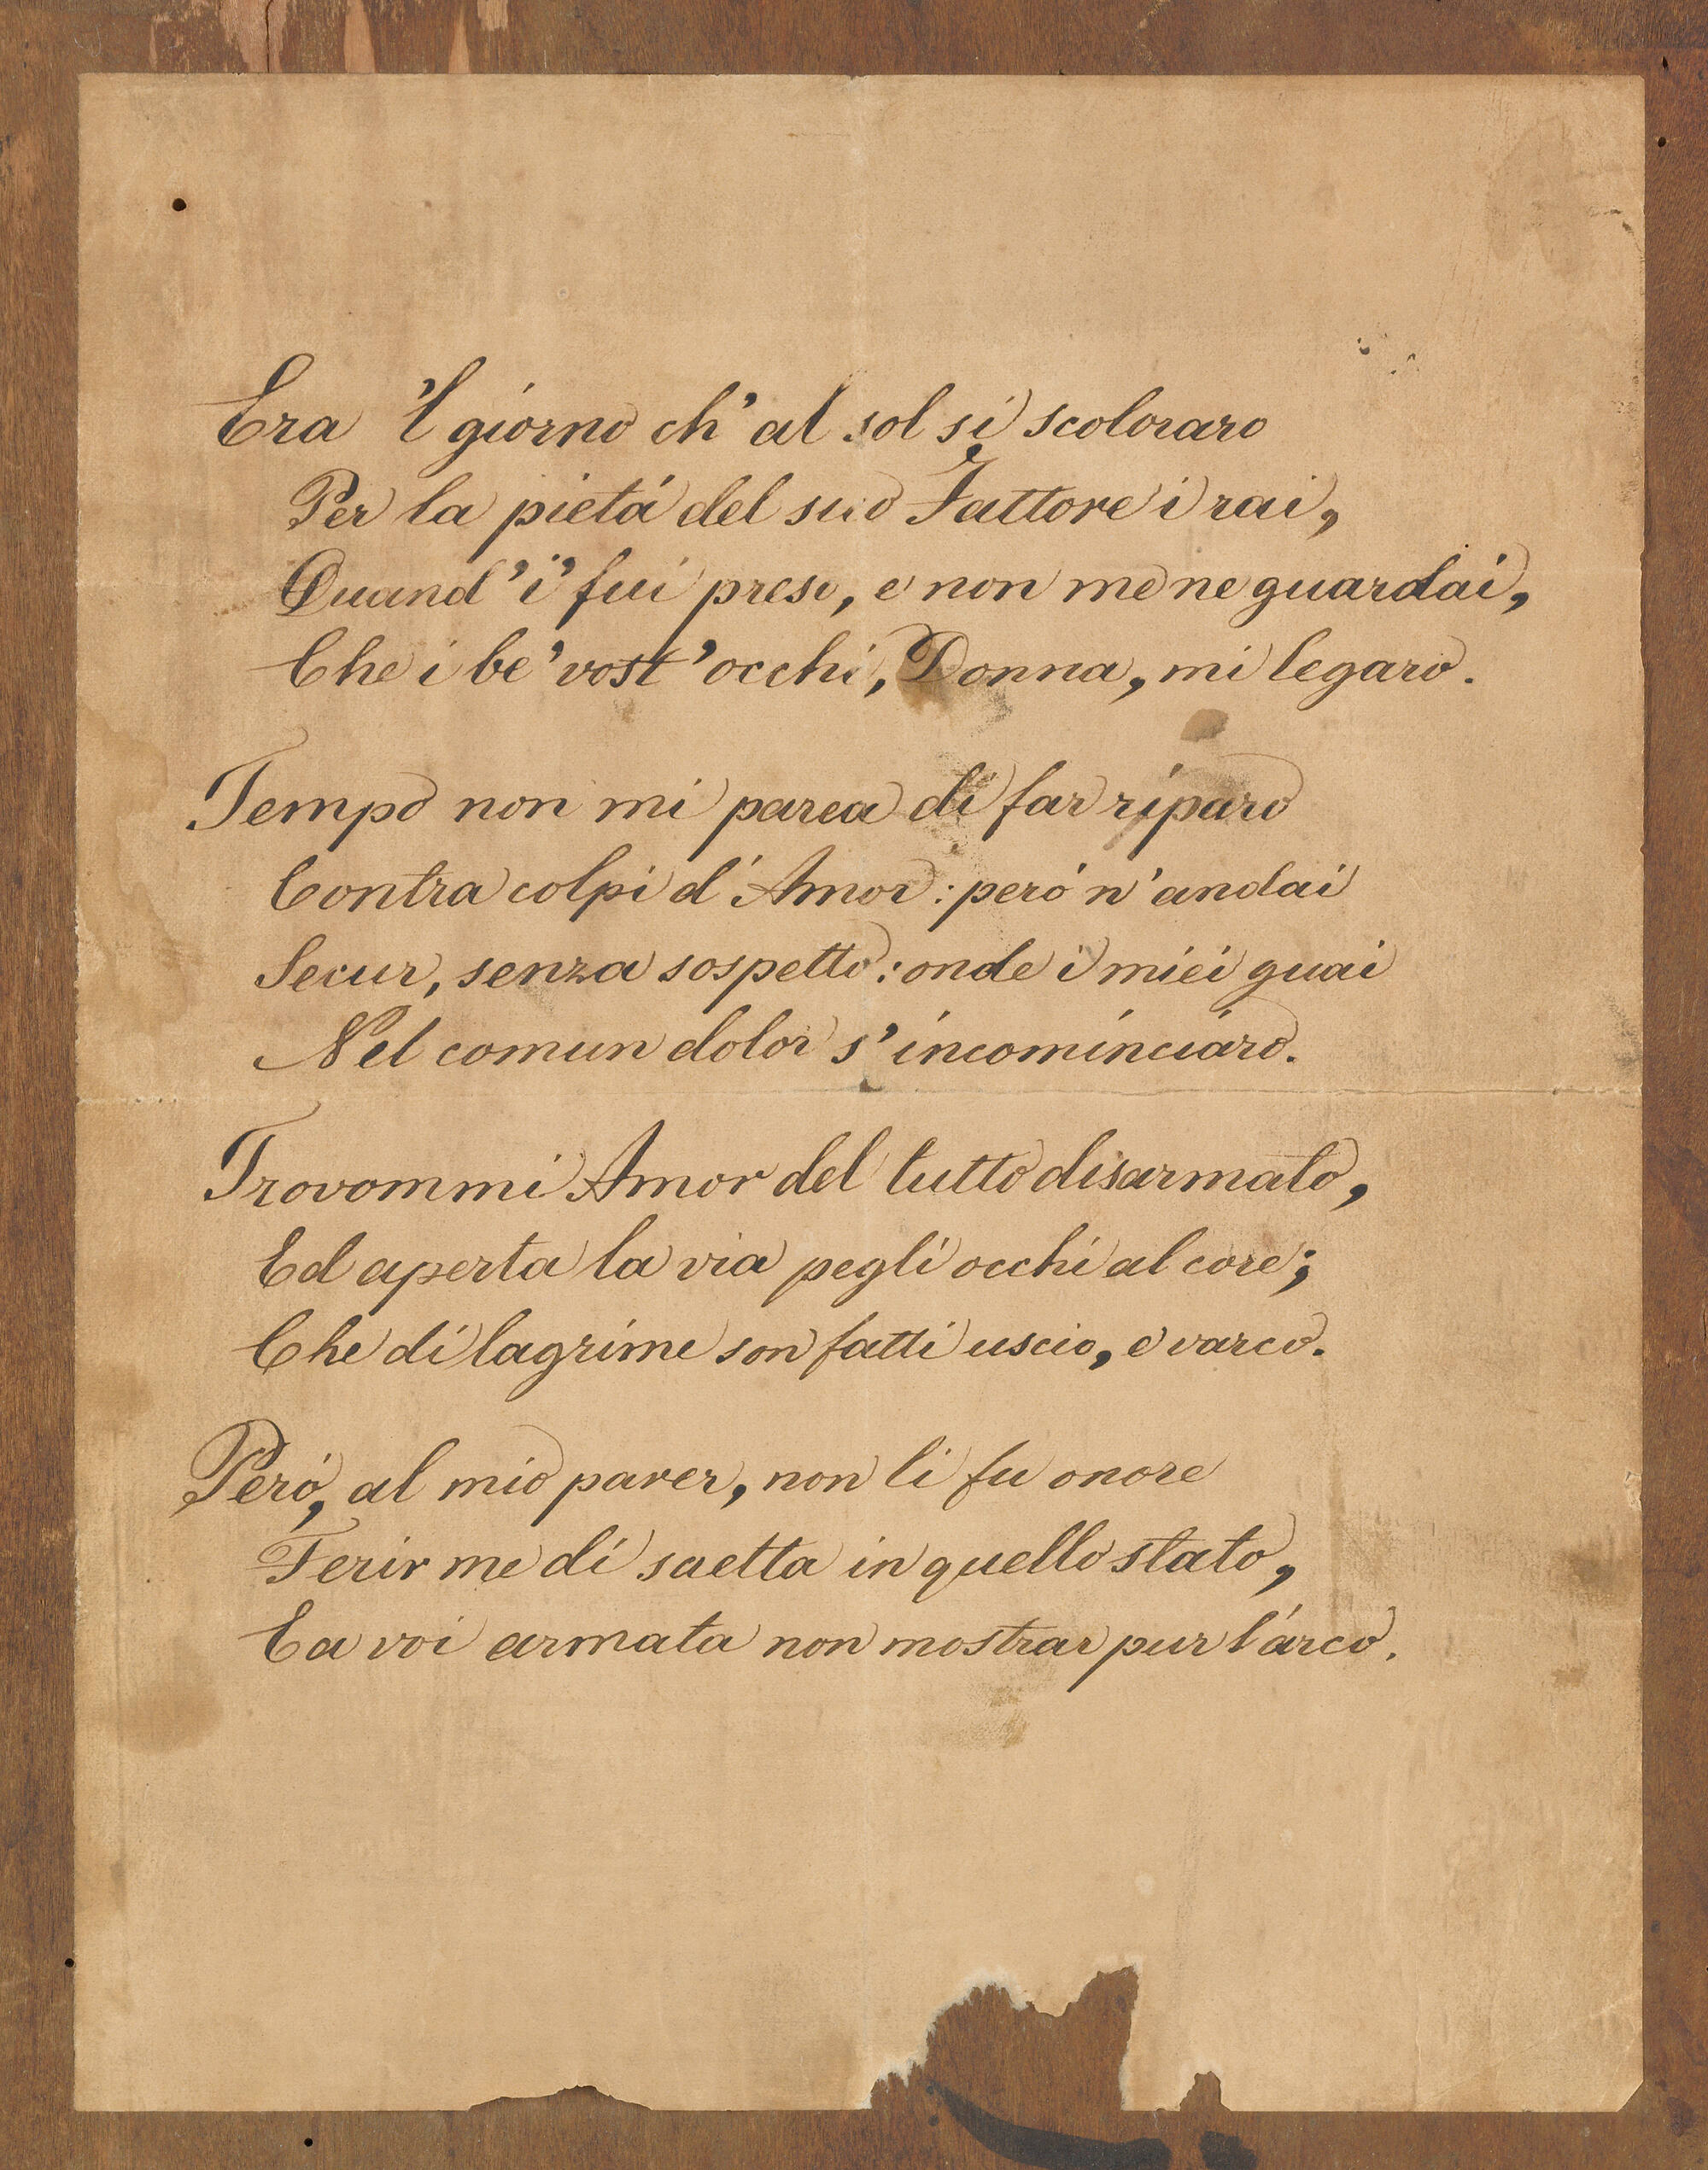 Era 'l giorno ch' al sol si scoloraro
Per la pietá del suo Fattore i rai,
Quand' i' fui preso, e non me ne guardai,
Che i be' vost' occhi, Donna, mi legaro.
Tempo non mi parea di far riparo
Contra colpi d' Amor: peró n' andai
Secur, senza sospetto: onde i miei guai
Nel comun dolor s' incominciaro.
Trovommi Amor del tutto disarmato,
Ed aperta la via pegli occhi al core;
Che di lagrime son fatti uscio, e varco.
Peró, al mio parer, non li fu onore
Ferir me di saetta in quello stato,
E a voi armata non mostrar pur l'arco.